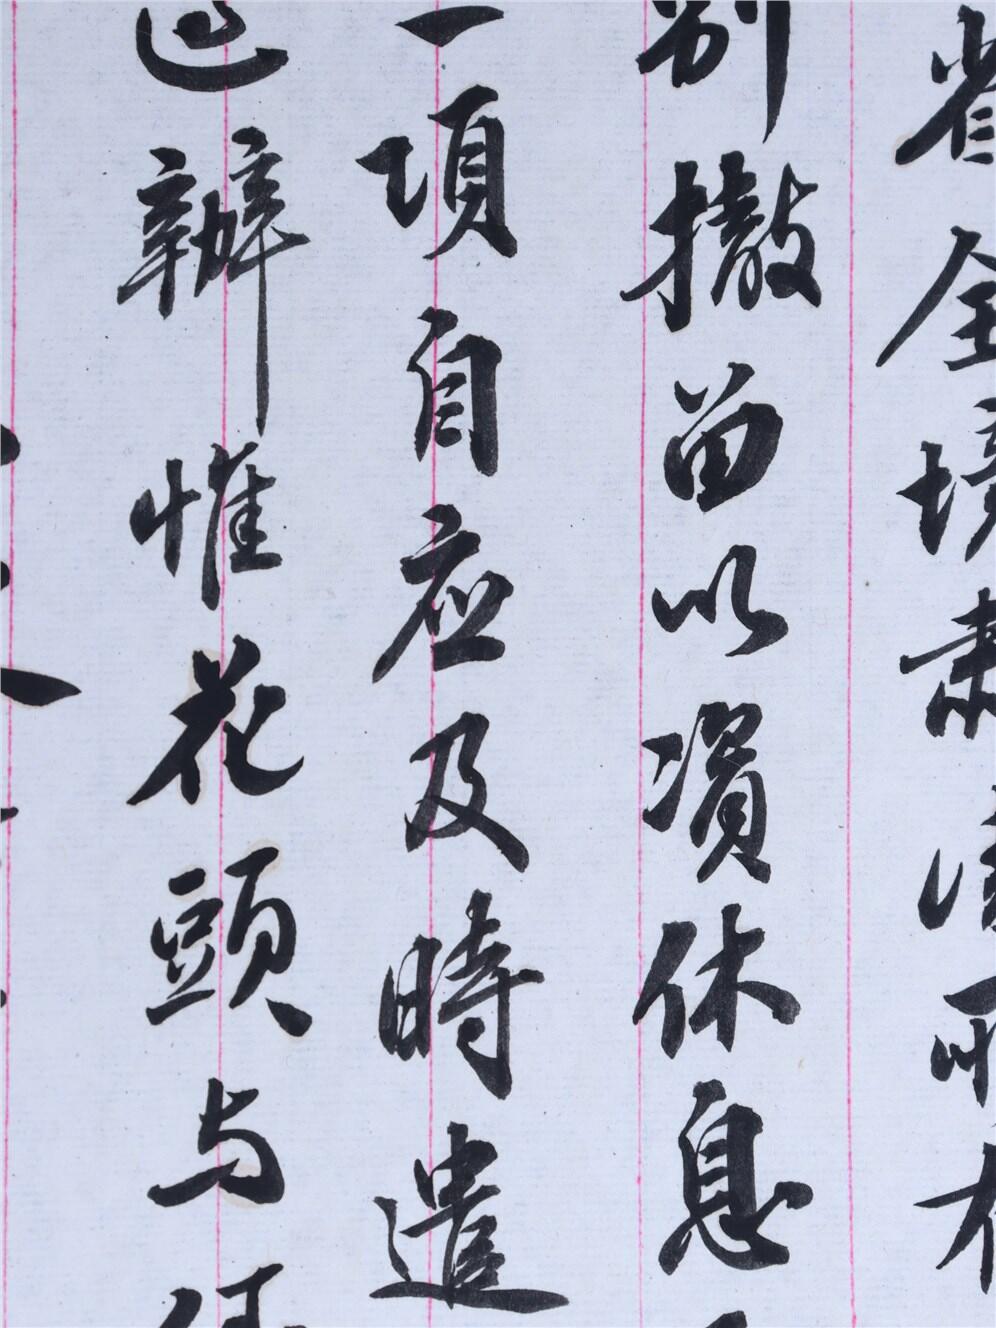 省全境肅清所有
別撤留以資休息
一項自应及時遣
辦惟花頭与